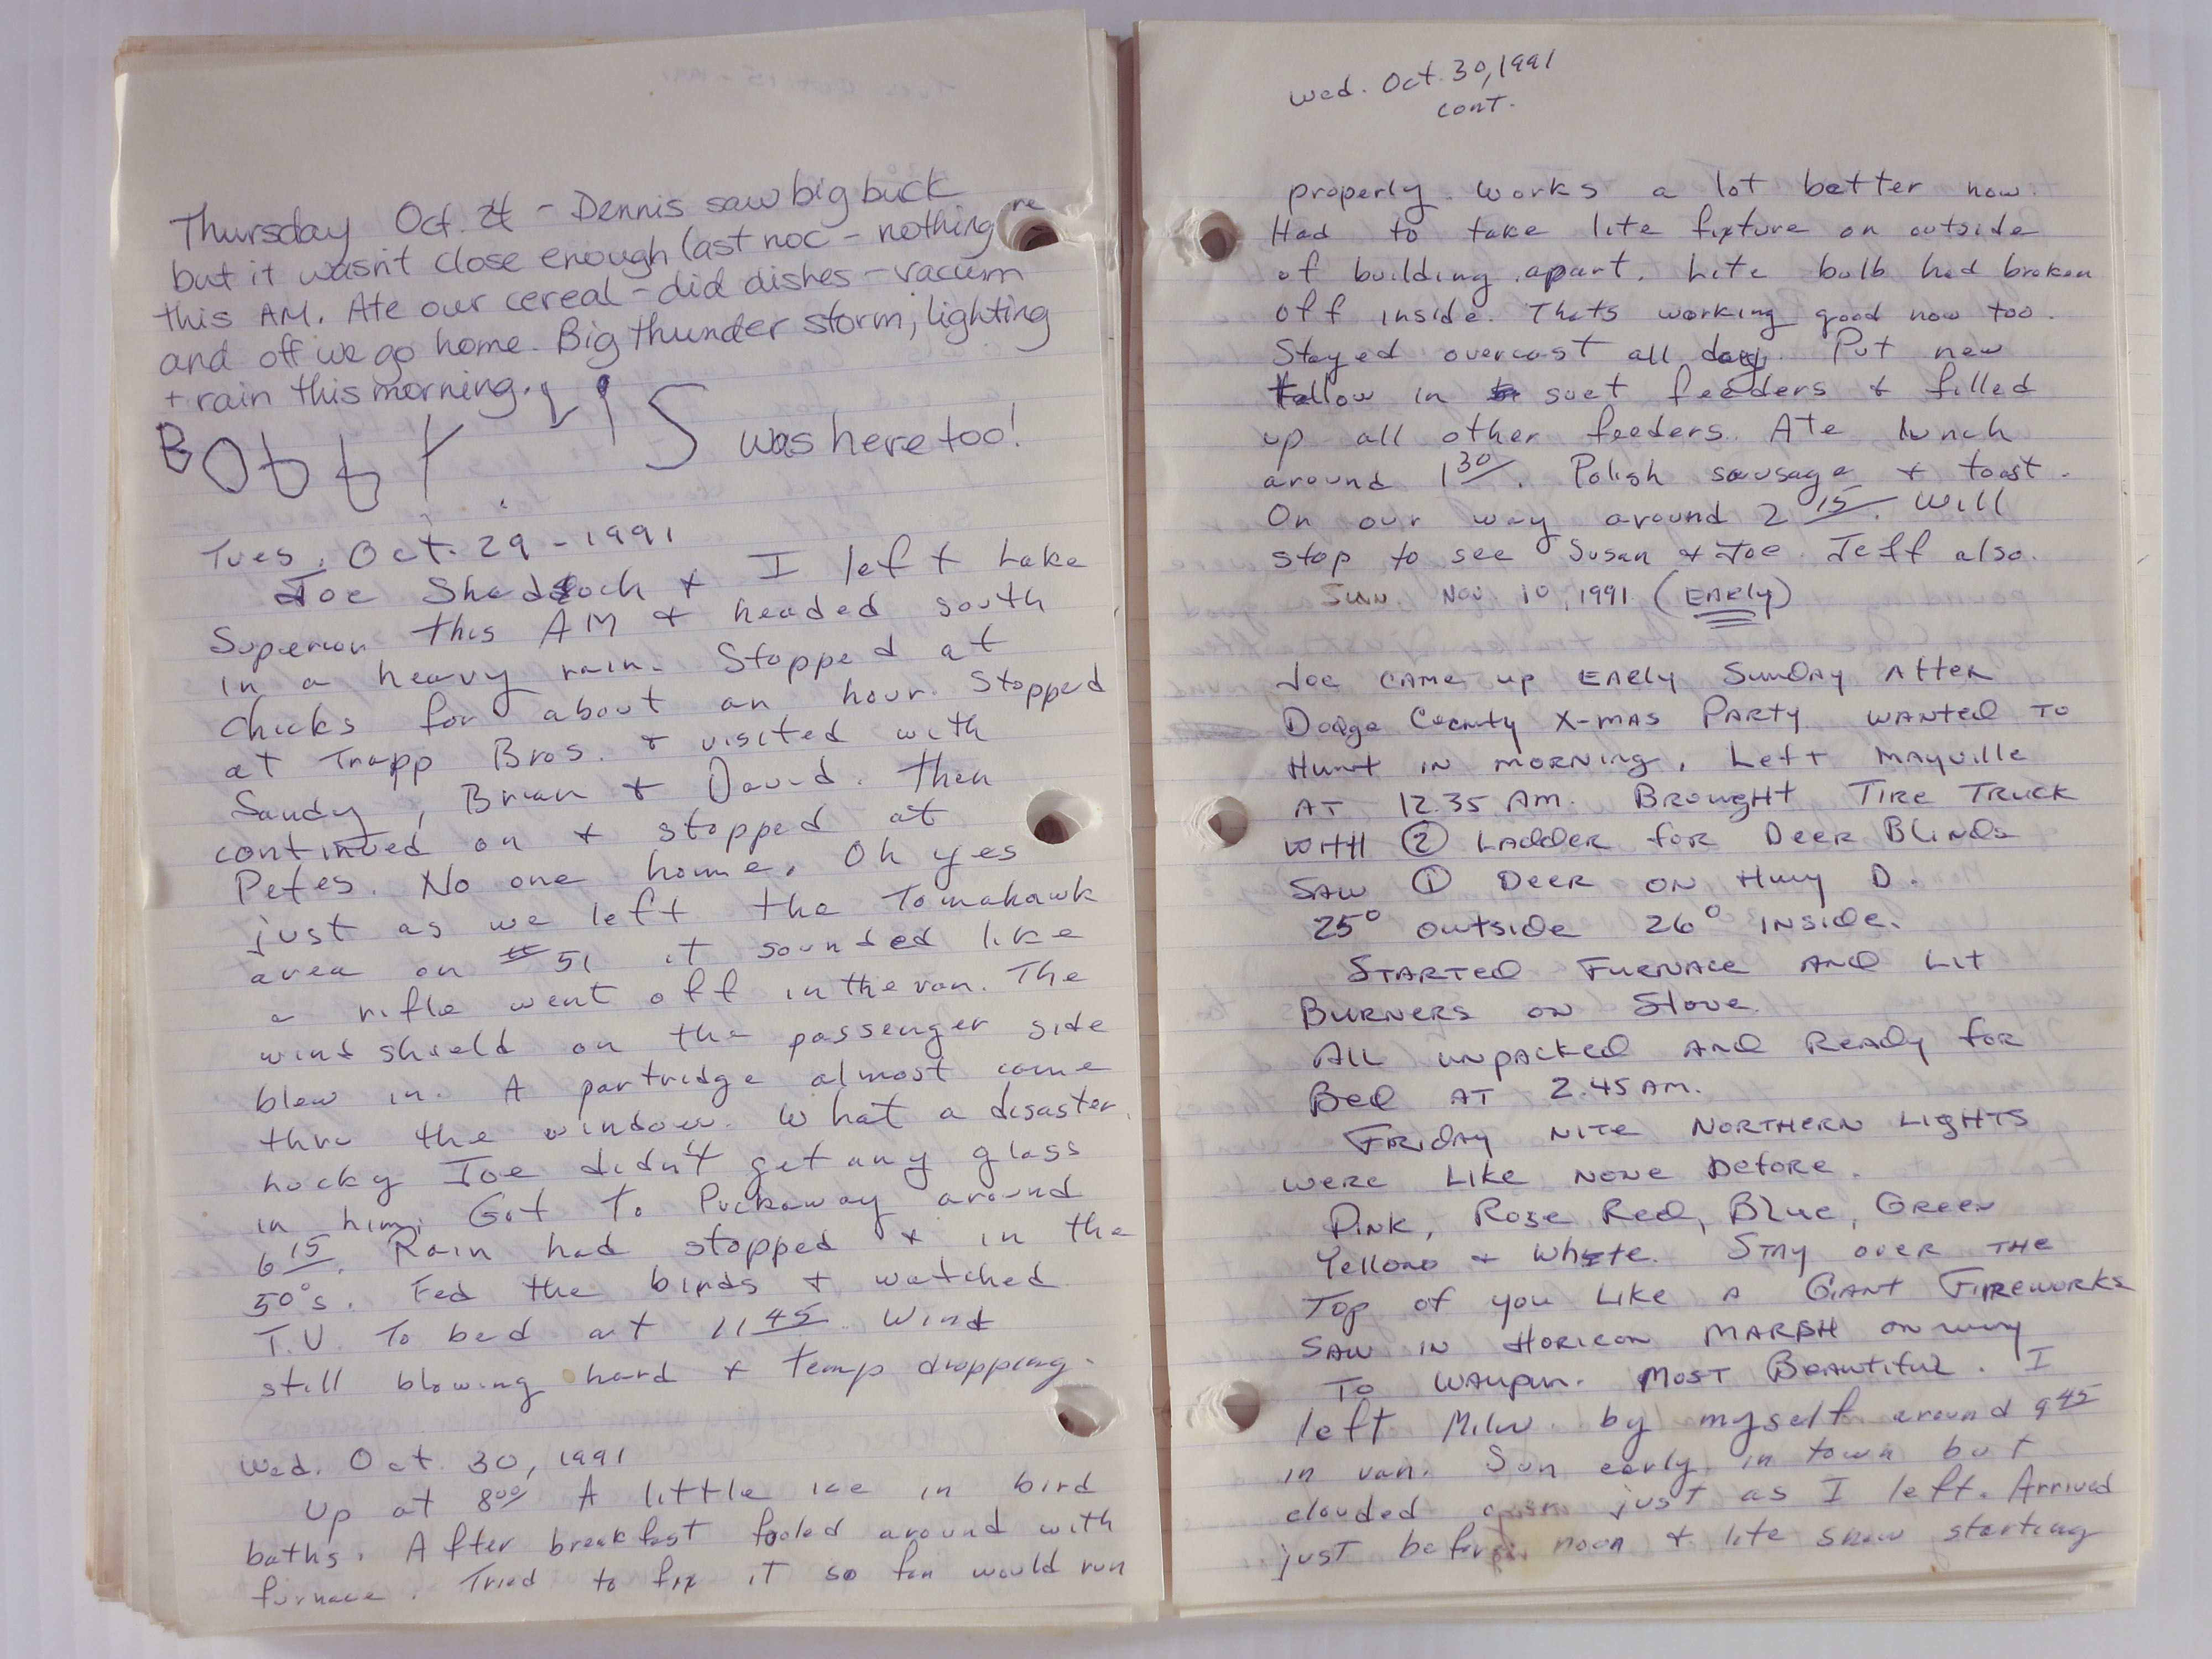 Thursday Oct. 24 - Dennis saw big buck
but it wasn't close enough last noc - nothing re
this AM. Ate our cereal - did dishes - vacum
and off we go home. Big thunder storm, lighting
+ rain this morning.
BObby wAS was here too!
Tues, Oct. 29 - 1991
Joe Shaddock + I left Lake
Superior this AM + headed south
in a heavy rain. Stopped at
Chicks for about an hour. Stopped
at Trapp Bros. + visited with
Sandy, Brian + David. Then
continued on + stopped at
Petes. No one home. Oh yes
just as we left the Tomahawk
area on 51 it sounded like
a rifle went off in the van. The
wind shield on the passenger side
blew in. A partridge almost came
thru the window. What a disaster.
Lucky Joe didn't get any glass
in him. Got to Puckaway around
6 15. Rain had stopped + in the
50°s. Fed the birds + watched
T.V. To bed at 11 45. Wind
still blowing hard + temp dropping.
Wed. Oct. 30, 1991
Up at 8 00 A little ice in bird
baths. After breakfast fooled around with
furnace. Tried to fix it so fan would run
Wed. Oct. 30, 1991
cont.
properly. Works a lot better now.
Had to take lite fixture on outside
of building apart. Lite bulb had broken
off inside. Thats working good now too.
Stayed overcast all day. Put new
tallow in suet feeders + filled
up all other feeders. Ate lunch
around 1 30. Polish sausage + toast.
On our way around 2 15. Will
stop to see Susan + Joe. Jeff also.
Sun. Nov. 10, 1991 (EARly)
Joe CAME up EARly SunDAy AfteR
Dodge County X-MAS PARTY. WANTED TO
Hunt IN MORNING. Left MAyville
AT 12.35 AM. BROugHt TIRE TRUCK
WITH (2) LADDER for DEER BliNDs
SAW (1) DEER ON Hwy D.
25° outside 26° INside.
STARTED FURNACE AND LIt
BURNERS ON Stove.
All unpAcked AND ReAdy foR
Bed AT 2.45 AM.
FRIDAy NITE NORTHERN LIGHTS
WERE LIKE NONE Before.
PINK, Rose Red, BLue, GReen
Yellow + White. STAy over THE
Top of you LIKE A GIANT FIREWORKS
SAW IN HORICON MARSH on wAy
To WAupun. MOST BEAutiful. I
left Milw. by myself around 9 45
in van. Sun early in town but
clouded over just as I left. Arrived
just before noon + lite snow starting